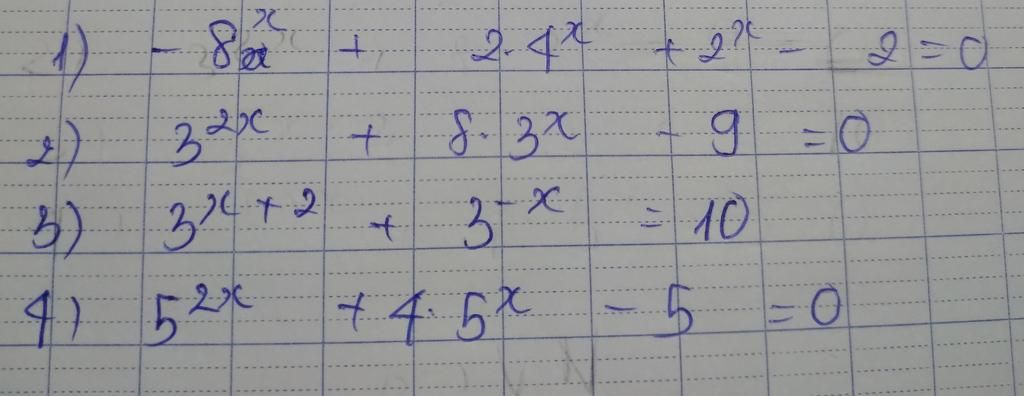 1) - 8ˣ + 2. 4ˣ + 2ˣ - 2 = 0
2) 3²ˣ + 8. 3ˣ - 9 = 0
3) 3ˣ⁺² + 3⁻ˣ = 10
4) 5²ˣ + 4. 5ˣ - 5 = 0